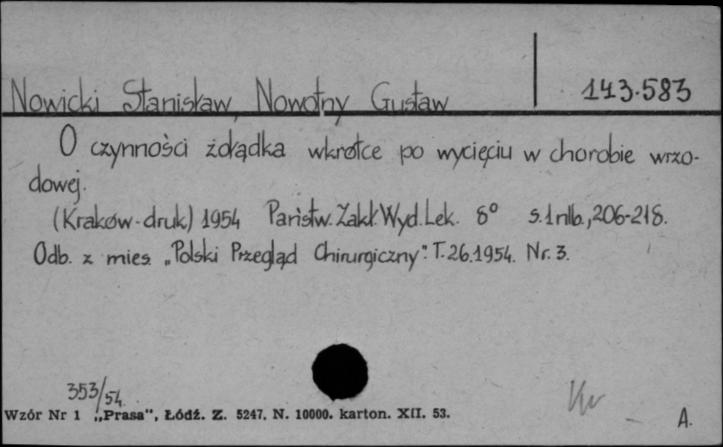 Nowicki Stanisław, Nowotny Gustaw 143.583
O czynności żołądka wkrótce po wycięciu w chorobie wrzo-
dowej.
(Kraków-druk) 1954 Państw. Zakł. Wyd. Lek. 8° s. 1 nlb., 206-218.
Odb. z mies. „Polski Przegląd Chirurgiczny". T. 26. 1954. Nr. 3.
353/54
Wzór Nr 1 „Prasa", Łódź. Z. 5247. N. 10000. karton. XII. 53.
A.